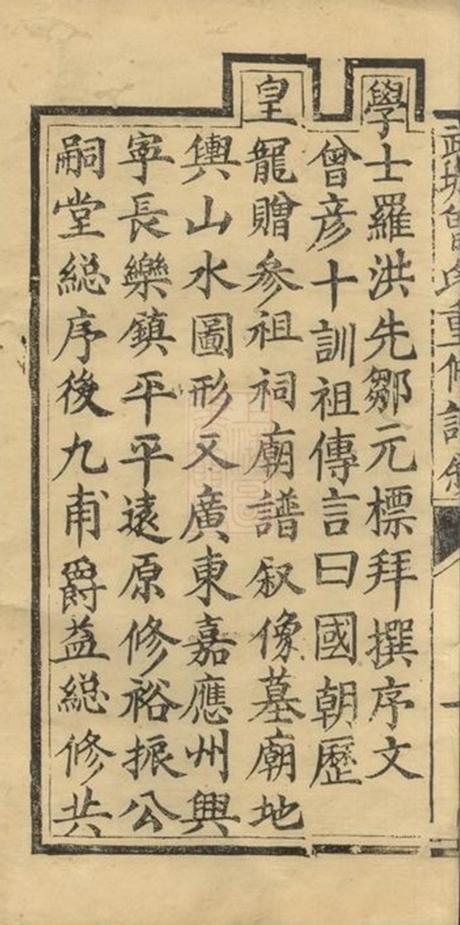 學士羅洪先鄒元標拜撰序文
曾彥十訓祖傳言曰國朝歷
皇寵贈參祖祠廟譜叙像墓廟地
輿山水圖形又廣東嘉應州興
寕長樂鎮平平遠原修裕振公
嗣堂総序後九甫爵益総修共